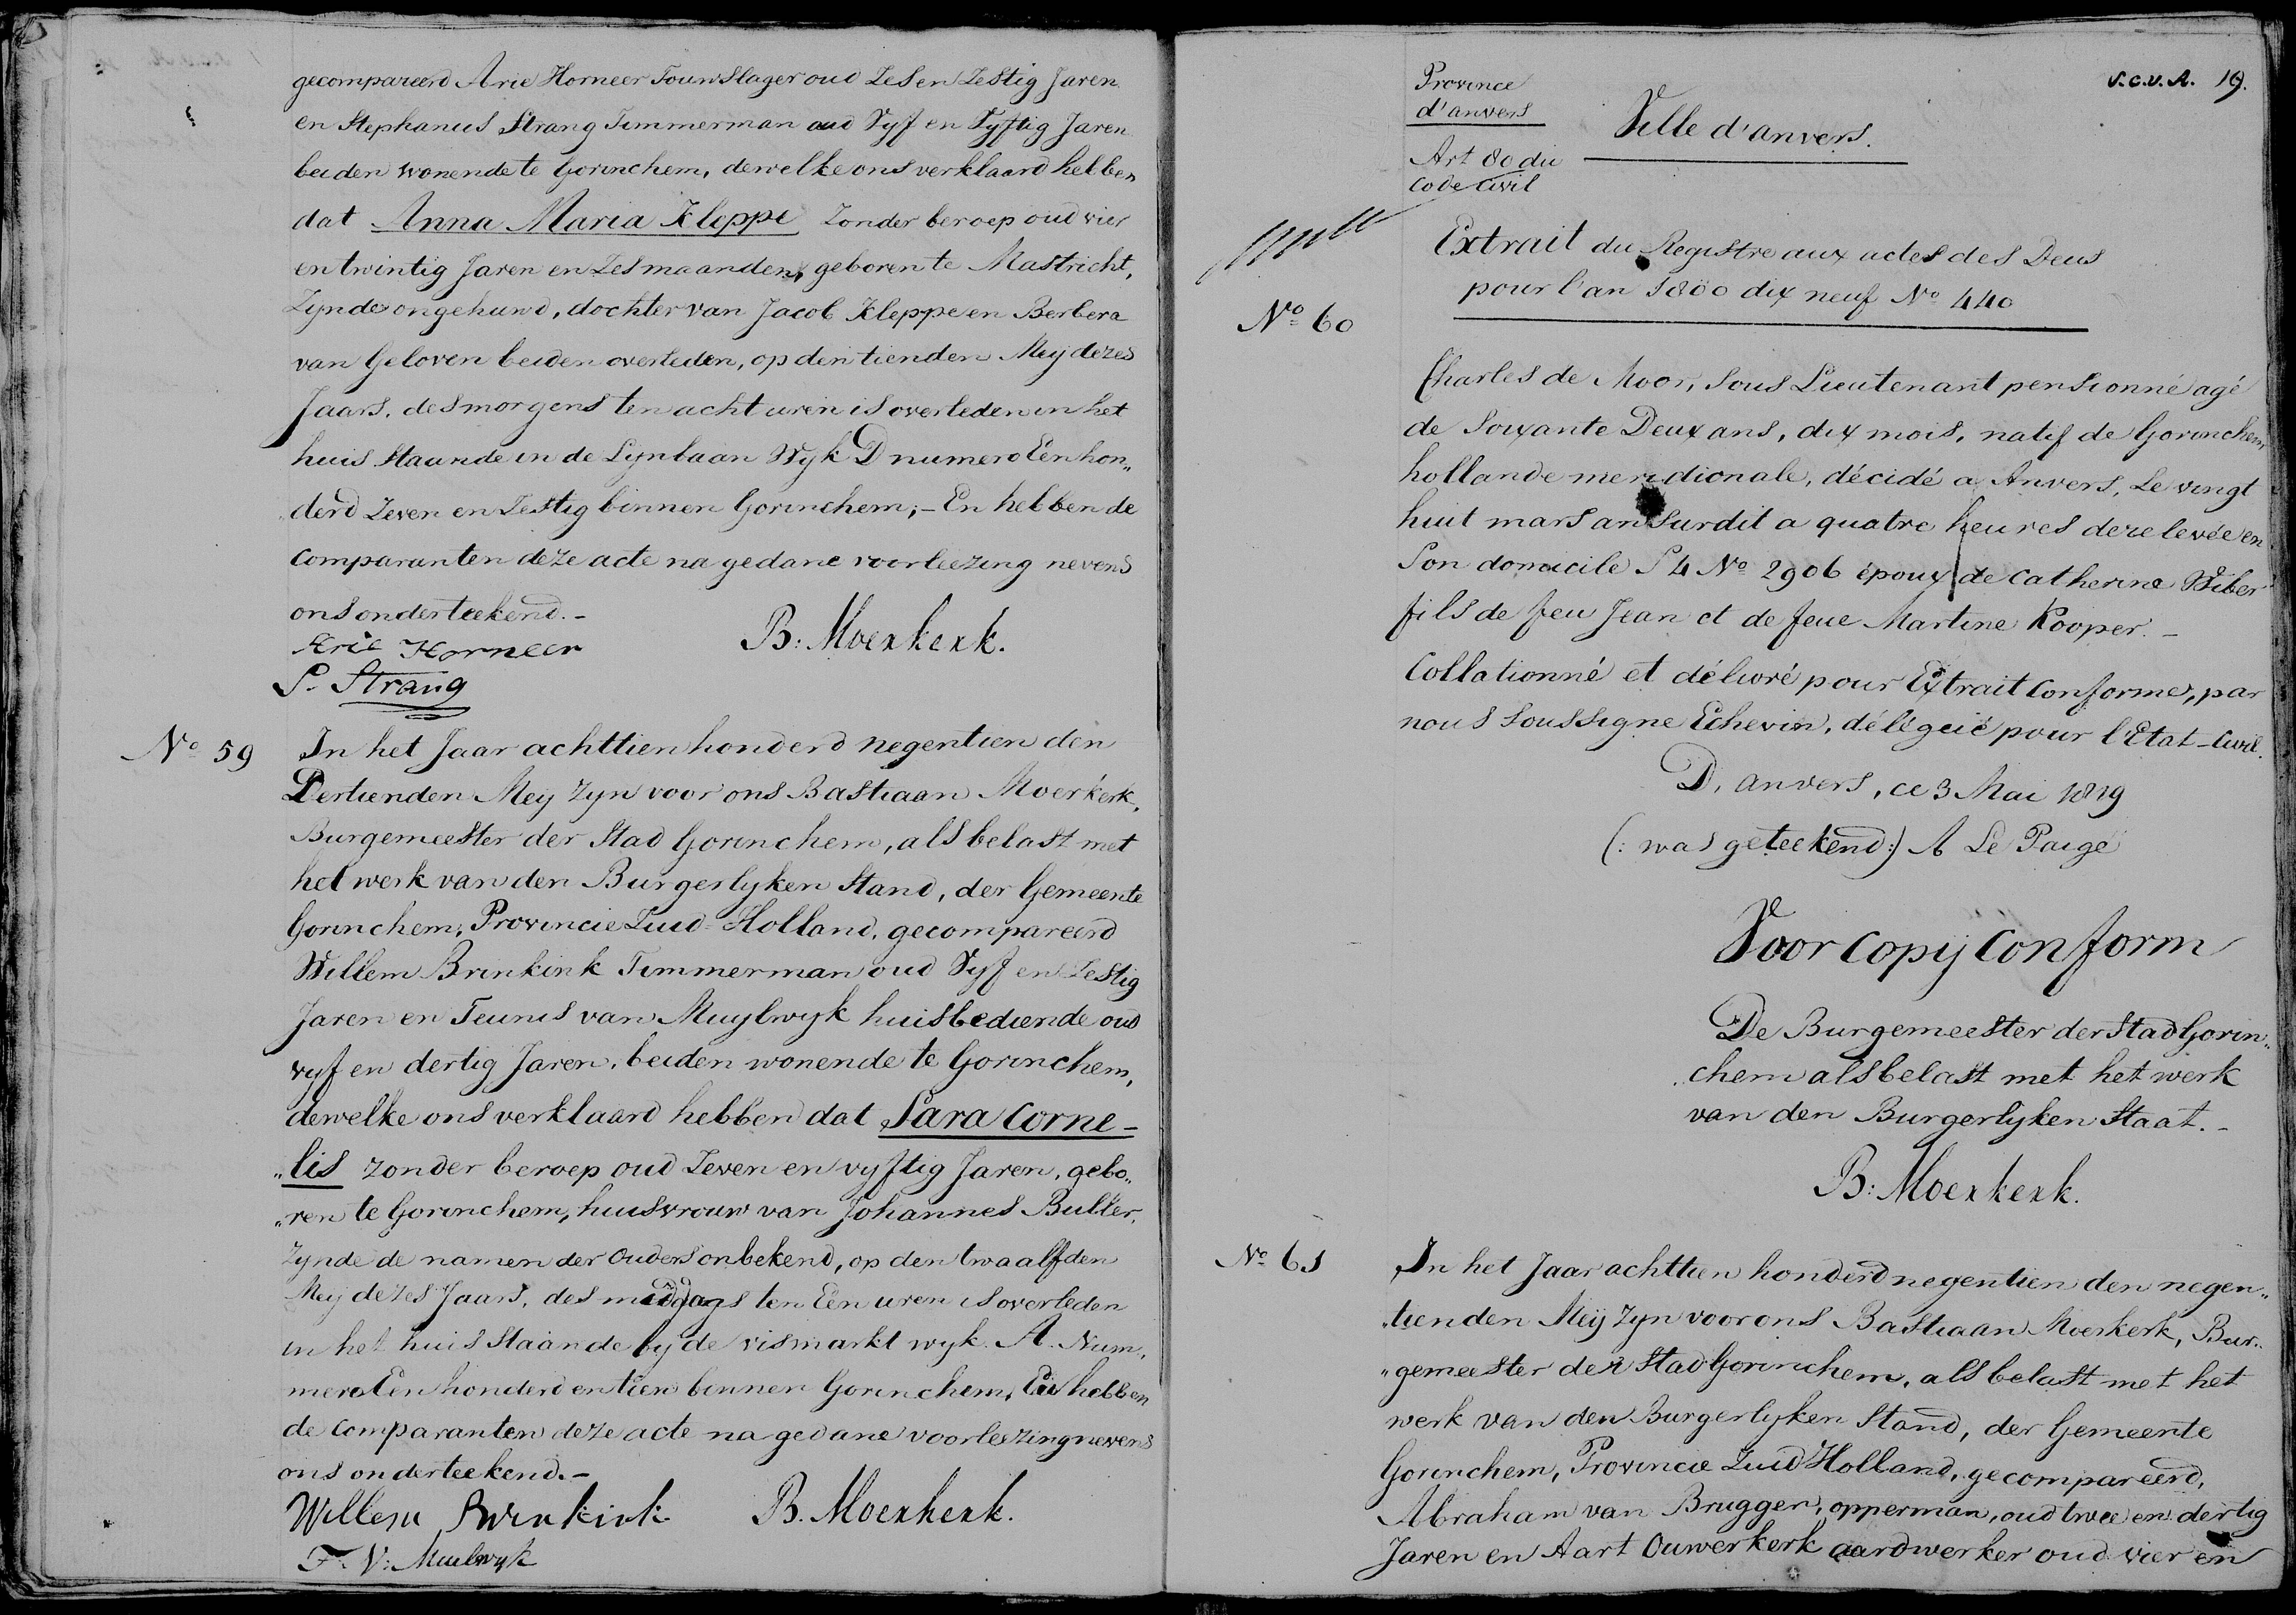 gecompareerd Arie Horneer Touwslager oud Zes en Zestig Jaren
en Stephanus Strang Timmerman oud Vyf en Vyftig Jaren
beiden wonende te Gorinchem, dewelke ons verklaard hebben
dat Anna Maria Kleppe Zonder beroep oud vier
en twintig Jaren en Zes maanden, geboren te Mastricht,
Zynde ongehuwd, dochter van Jacob Kleppe en Berbera
van Geloven beiden overleden, op den tienden Meij dezes
Jaars, des morgens ten acht uren is overleden in het
huis Staande in de Lynbaan Wyk D numero Eén hon„
„derd Zeven en Zestig binnen Gorinchem; – En hebben de
Comparanten deze acte na gedane voorleezing nevens
ons onderteekend. –
Arie Horneer B: Moerkerk.
S. Strang
No 59 In het Jaar achttien honderd negentien den
Dertienden Meij zyn voor ons Bastiaan Moerkerk,
Burgemeester der Stad Gorinchem, als belast met
het werk van den Burgerlyken Stand, der Gemeente
Gorinchem, Provincie Zuid-Holland, gecompareerd
Willem Brinkink Timmerman oud Vyf en Zestig
Jaren en Teunis van Muylwyk huisbediende oud
vyf en dertig Jaren, beiden wonende te Gorinchem,
dewelke ons verklaard hebben dat Sara Corne–
„lis zonder beroep oud Zeven en vyftig Jaren, gebo„
„ren te Gorinchem, huisvrouw van Johannes Butter,
Zynde de namen der Ouders onbekend, op den twaalfden
Meij dezes Jaars, des middags ten Eén uren is overleden
in het huis Staande by de vismarkt wyk A. Num,
mero Eén honderd en tien binnen Gorinchem, En hebben
de Comparanten deze acte na gedane voorlezing nevens
ons onderteekend. –
Willem Brinkink B. Moerkerk.
T. V: Muilwyk
S.C.V.A. 19.
Province
d'anvers
Ville d'anvers.
Art 80 du
Code Civil
Extrait du Registre aux actes des Deus
pour l'an 1800 dix neuf No 440
No 60
Charles de Moor, Sous Lieutenant pensionné agé
de Soixante Deux ans, dix mois, natif de Gorinchem
hollande meridionale, décidé a Anvers, Le vingt
huit mars an Surdit a quatre heures de relevée en
Son domicile S 4 No 2906 époux de Catherine Wiber
fils de feu Jean et de feue Martine Kooper. –
Collationné et délivré pour Extrait Conforme, par
nous Soussigne Echevin, délégué pour l'Etat-Civil.
D, anvers, ce 3 Mai 1819
(: was geteekend:) A Le Paige
Voor Copij Conform
De Burgemeester der Stad Gorin„
„chem als belast met het werk
van den Burgerlyken Staat. –
B: Moerkerk.
No 61 In het Jaar achttien honderd negentien den negen„
„tienden Meij zyn voor ons Bastiaan Moerkerk, Bur„
„gemeester der Stad Gorinchem, als belast met het
werk van den Burgerlyken Stand, der Gemeente
Gorinchem, Provincie Zuid Holland, gecompareerd,
Abraham van Bruggen, opperman, oud twee en dertig
Jaren en Aart Ouwerkerk aardwerker oud vier en